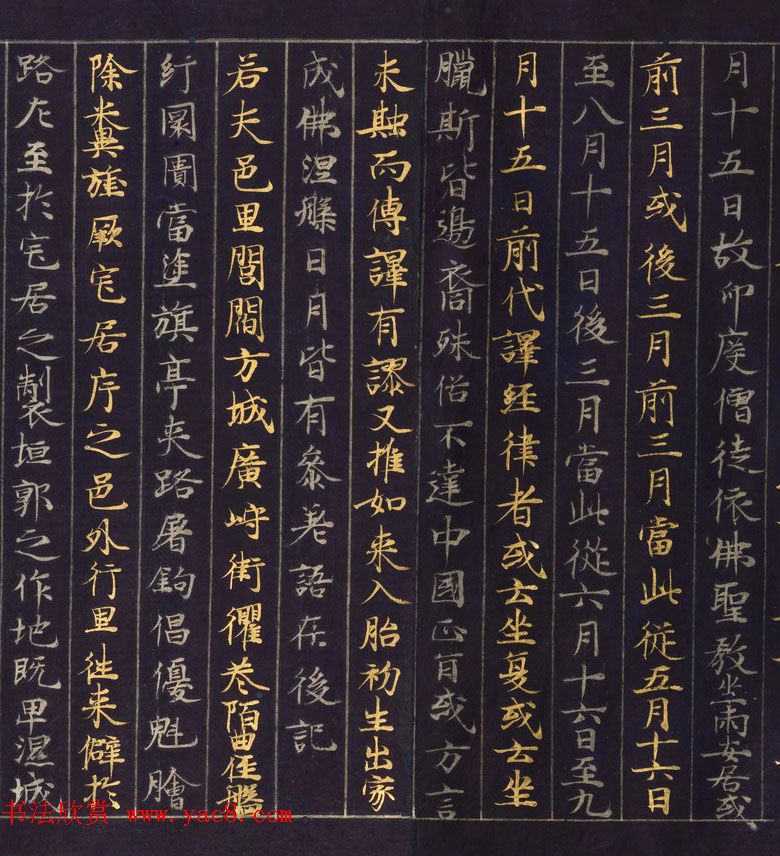 月十五日故印度僧徒依佛聖教坐雨安居或
前三月或後三月前三月當此從五月十六日
至八月十五日後三月當此從六月十六日至九
月十五日前代譯経律者或云坐夏或云坐
臘斯皆邊裔殊俗不達中國正音或方言
未融而傳譯有謬又推如来入胎初生出家
成佛涅槃日月皆有參差語在後記
若夫邑里閭閻方城廣峙街衢巷陌曲徑盤
紆闤闠當塗旗亭夾路屠釣倡優魁膾
除糞旌厥宅居斥之邑外行里往来僻於
路左至於宅居之製垣郭之作地既卑濕城
书法欣赏 www.yac8.com